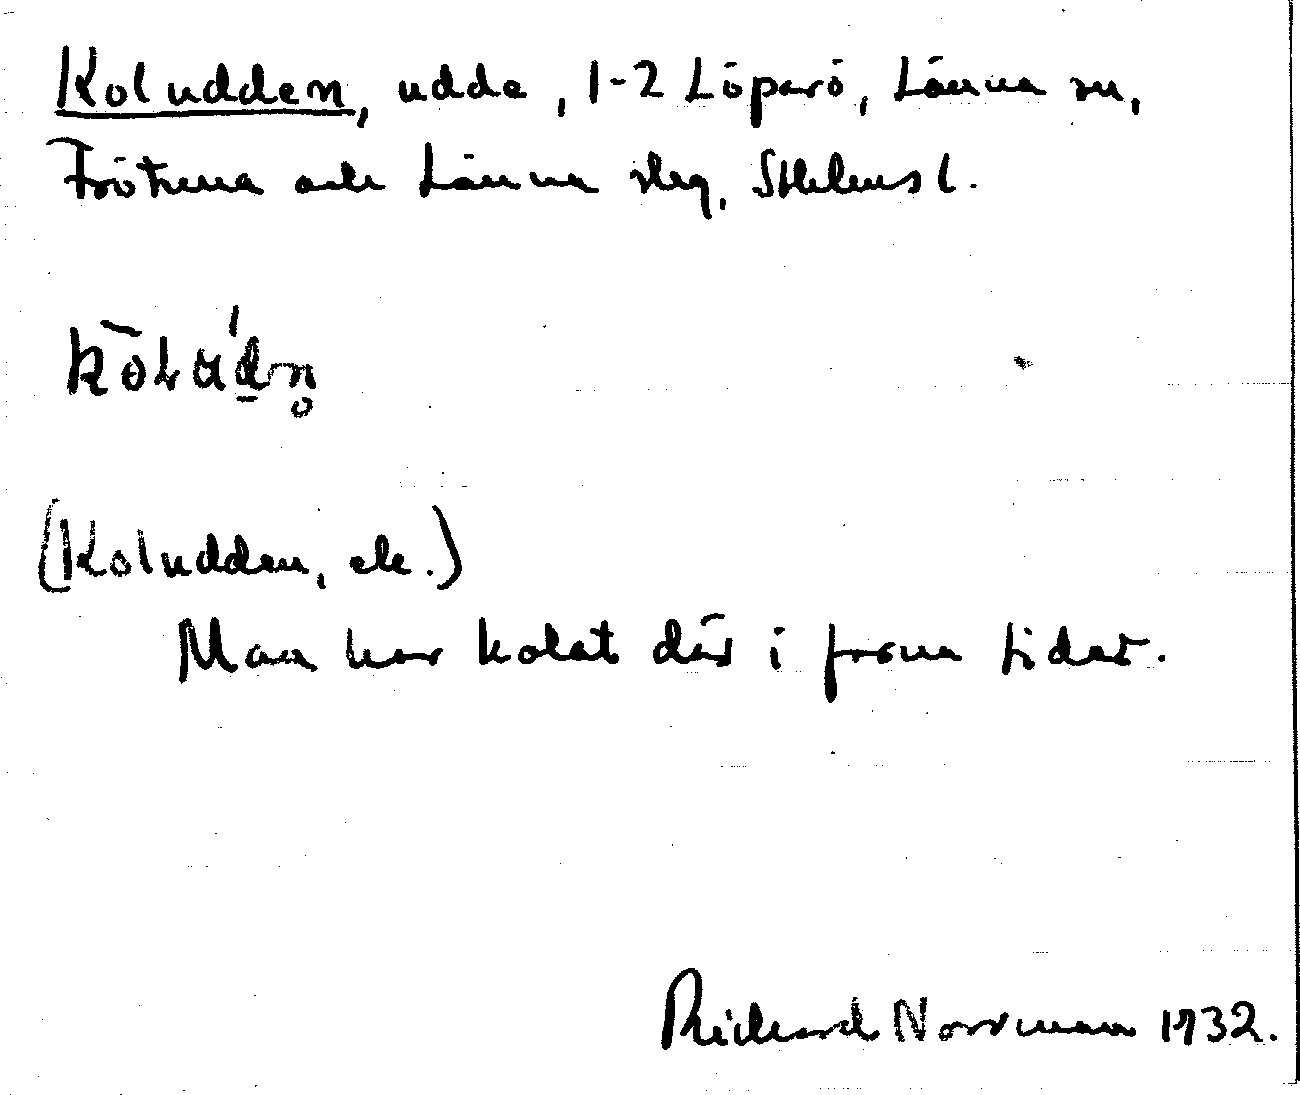 Koludden, udde, 1-2 Löparö, Länna sn,
Frötuna och Länna skg, Sthlms l.
(Koludden, ek.)
Man har kolat där i forna tider.
Richard Norrman 1932.